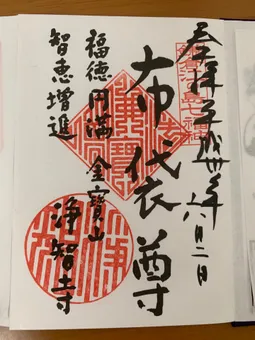 奉拝平成卅年六月二日
布袋尊
福徳円満
智恵増進
金寶山
淨智寺